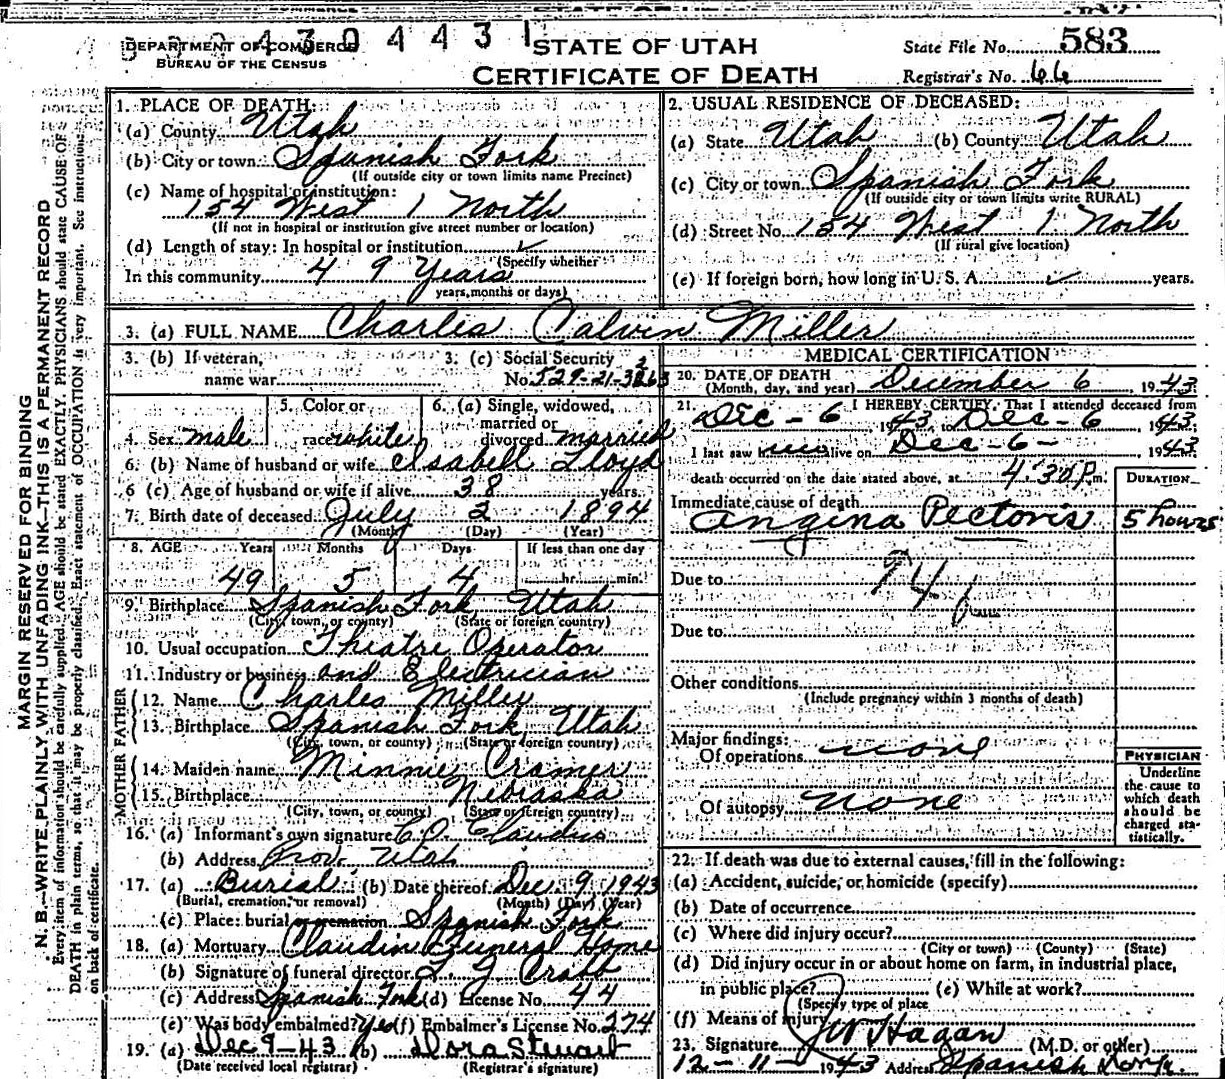 DEPARTMENT OF COMMERCE
BUREAU OF THE CENSUS
4 3 0 4 4 3 1
STATE OF UTAH
CERTIFICATE OF DEATH
State File No. 583
Registrar's No. 66
MARGIN RESERVED FOR BINDING
N. B.—WRITE PLAINLY WITH UNFADING INK—THIS IS A PERMANENT RECORD
Every item of information should be carefully supplied. AGE should be stated EXACTLY. PHYSICIANS should state CAUSE OF
DEATH in plain terms, so that it may be properly classified. Exact statement of OCCUPATION is very important. See instructions
on back of certificate.
1. PLACE OF DEATH:
(a) County Utah
(b) City or town Spanish Fork
(If outside city or town limits name Precinct)
(c) Name of hospital or institution:
154 West 1 North
(If not in hospital or institution give street number or location)
(d) Length of stay: In hospital or institution ✓
(Specify whether
In this community 49 Years
years, months or days)
2. USUAL RESIDENCE OF DECEASED:
(a) State Utah (b) County Utah
(c) City or town Spanish Fork
(If outside city or town limits write RURAL)
(d) Street No. 154 West 1 North
(If rural give location)
(e) If foreign born, how long in U. S. A. ✓ years.
3. (a) FULL NAME Charles Calvin Miller
3. (b) If veteran, name war
3. (c) Social Security
No. 529-21-3263
4. Sex male
5. Color or race white
6. (a) Single, widowed, married or divorced married
6. (b) Name of husband or wife Isabell Lloyd
6 (c) Age of husband or wife if alive 38 years.
7. Birth date of deceased July 2 1894
(Month) (Day) (Year)
8. AGE Years Months Days If less than one day
49 5 4 hr. min.
9. Birthplace Spanish Fork Utah
(City, town, or county) (State or foreign country)
10. Usual occupation Theatre Operator
11. Industry or business and Electrician
FATHER
12. Name Charles Miller
13. Birthplace Spanish Fork Utah
(City, town, or county) (State or foreign country)
MOTHER
14. Maiden name Minnie Cramer
15. Birthplace Nebraska
(City, town, or county) (State or foreign country)
16. (a) Informant's own signature C.O. Claudin
(b) Address Provo Utah
17. (a) Burial (b) Date thereof Dec 9 1943
(Burial, cremation, or removal) (Month) (Day) (Year)
(c) Place: burial or cremation Spanish Fork
18. (a) Mortuary Claudin Funeral Home
(b) Signature of funeral director Crabb
(c) Address Spanish Fork (d) License No. 44
(e) Was body embalmed? Yes (f) Embalmer's License No. 274
19. (a) Dec 9-43 (b) Dora Stewart
(Date received local registrar) (Registrar's signature)
MEDICAL CERTIFICATION
20. DATE OF DEATH
(Month, day, and year) December 6, 1943
21. I HEREBY CERTIFY, That I attended deceased from
Dec-6 1943, to Dec-6 1943;
I last saw him alive on Dec-6- 1943
death occurred on the date stated above, at 4:30 P. m.
DURATION
Immediate cause of death
Angina Pectoris 5 hours
Due to 94b
Due to
Other conditions
(Include pregnancy within 3 months of death)
Major findings:
Of operations none
Of autopsy none
PHYSICIAN
Underline
the cause to
which death
should be
charged sta-
tistically.
22. If death was due to external causes, fill in the following:
(a) Accident, suicide, or homicide (specify)
(b) Date of occurrence
(c) Where did injury occur?
(City or town) (County) (State)
(d) Did injury occur in or about home on farm, in industrial place,
in public place? (e) While at work?
(Specify type of place
(f) Means of injury
23. Signature JW Hagan (M.D. or other)
12-11-1943 Address Spanish Fork